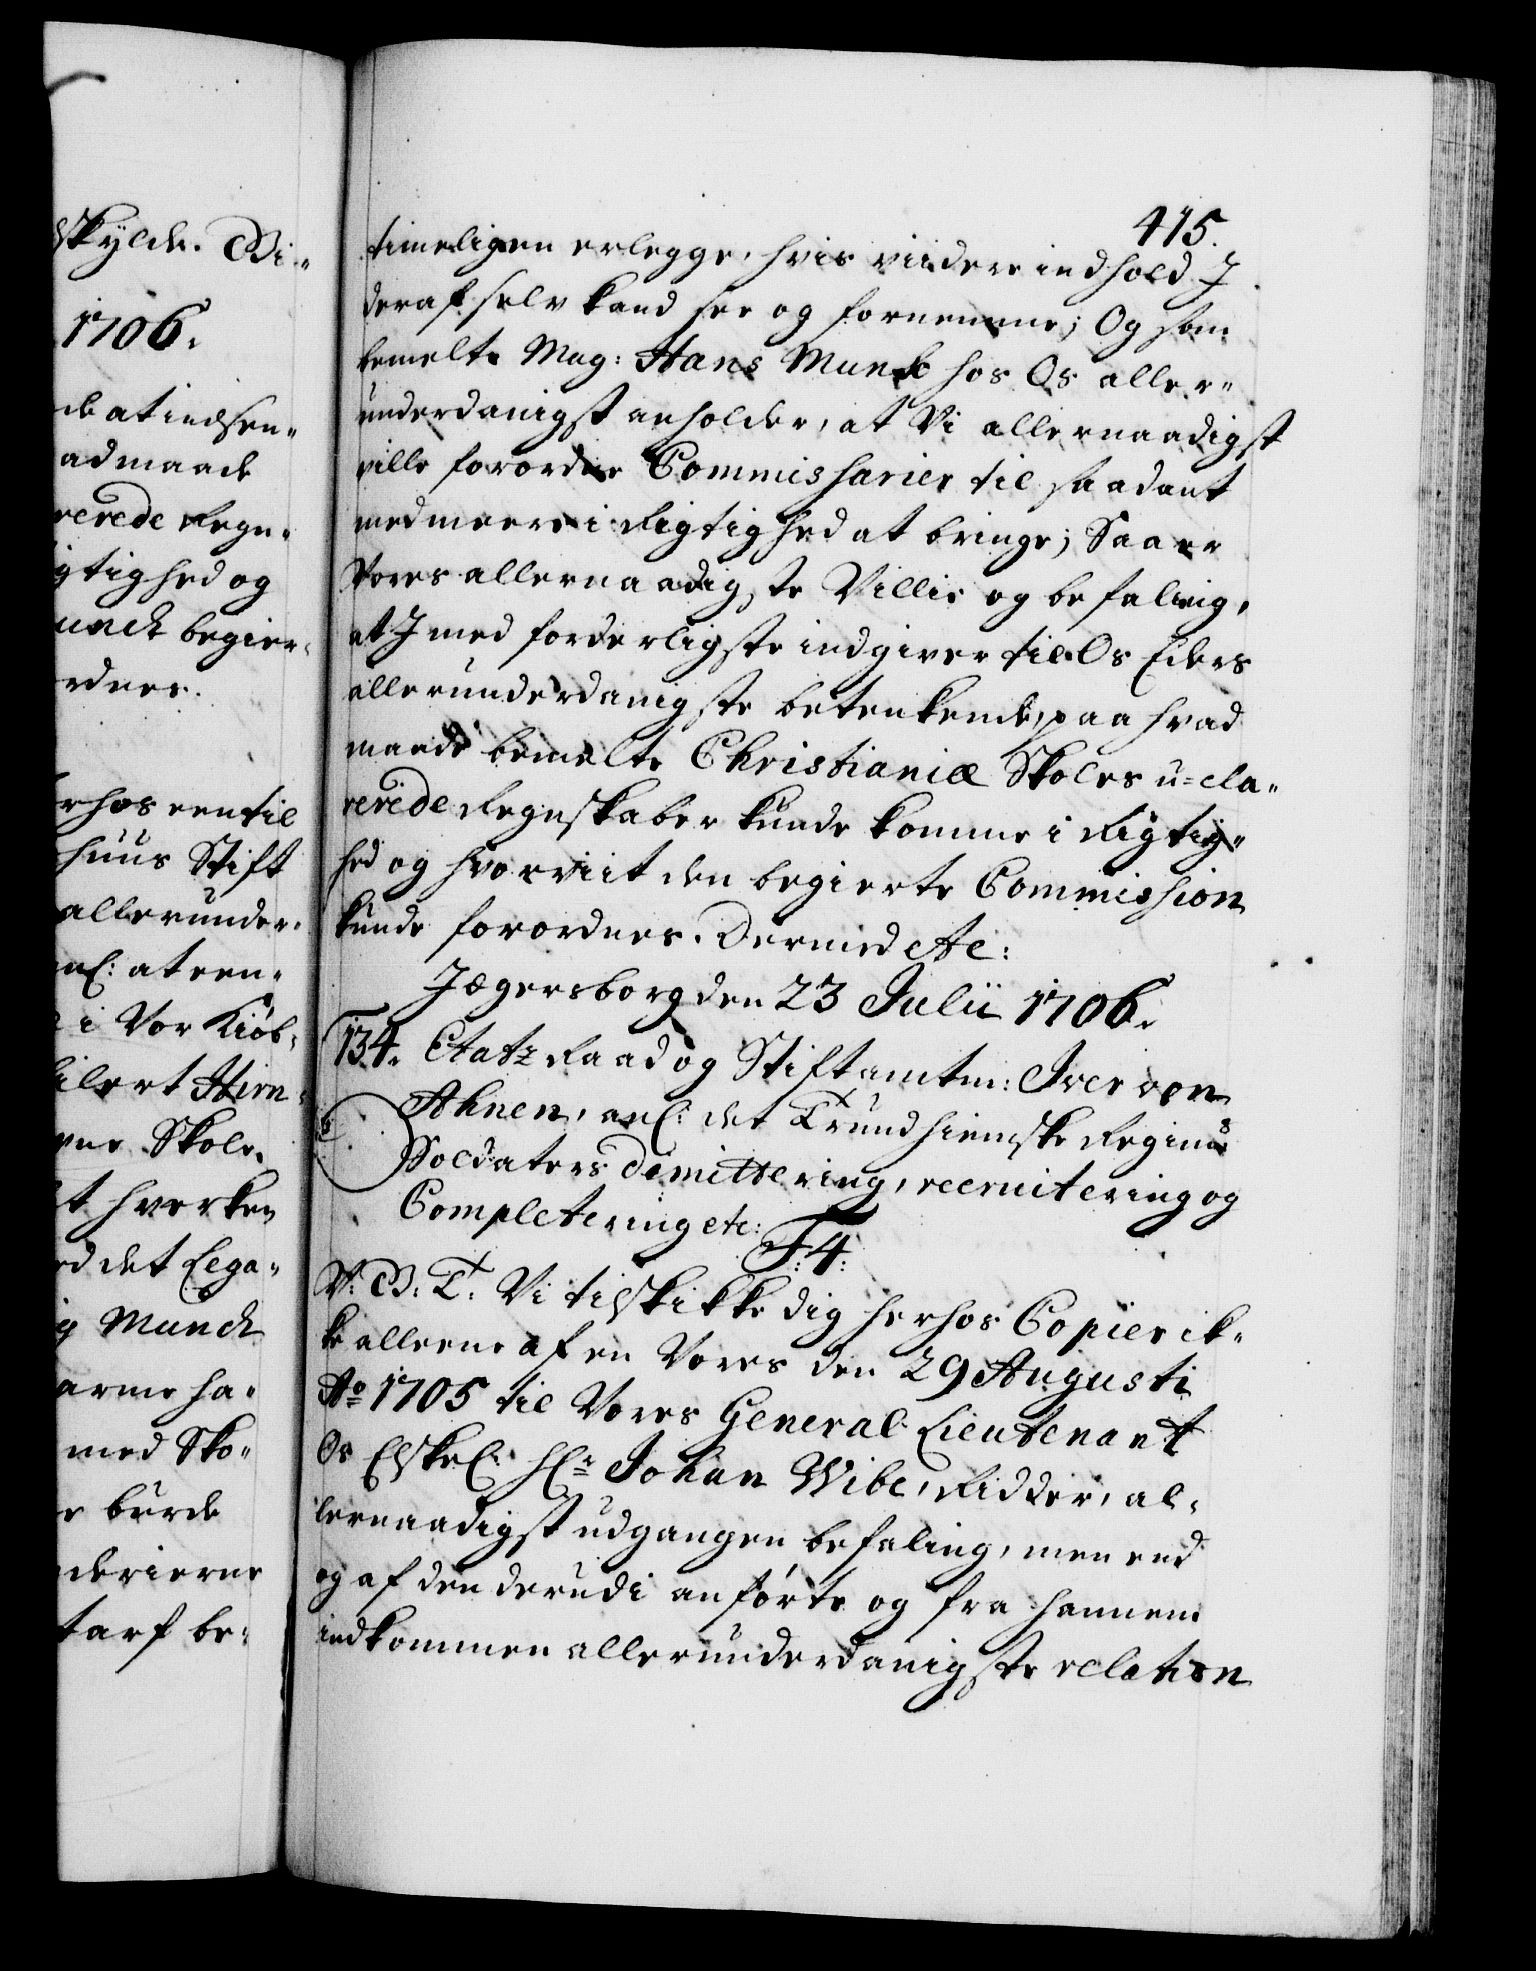 skylde. Vi-
1706.
de at indsen-
ad maade
rerede Regn-
gtighed og
unck begier-
rdnes.
rhos een til
huus Stift
allerunder-
nl: at een-
i Vor Kiøb-
ilert Hirn-
ne Skole.
t hverken
d det Lega-
g Munck
arme ha-
med Sko-
burde
derierne
tarf be-
415.
timeligen erlegge, hvis viidere indhold I
deraf self kand see og fornemme; Og som
bemelte Mag: Hans Munk hos Os aller-
underdanigst anholder, at Vi allernaadigst
ville forordne Commissarier til saadant
med meere i Rigtighed at bringe; Saa er
Vores allernaadigste Villie og befaling,
at I med forderligste indgiver til Os Eders
allerunderdanigste betenkende, paa hvad
maade bemelte Christianiæ Skoles u-cla-
rerede Regnskaber kunde komme i Rigtig-
hed og hvorviit den begierte Commission
kunde forordnes. Dermed etc:
Jægersborg den 23 Julii 1706.
134. Etatz Raad og Stiftamtm: Iver von
Ahnen, anl: det Trundhiemske Regim:s
Soldaters dimittering, recruitering og
Completering etc:
F:4:
V: G: T: Vi tilskikke dig herhos Copier ik-
ke alleene af en Vores den 29 Augusti
Ao 1705 til Vores General Lieutenant
Os Elskel: Hr Johan Wibe, Ridder, al-
lernaadigst udgangen befaling, men end
og af den derudi anførte og fra hannem
indkommen allerunderdanigste relation